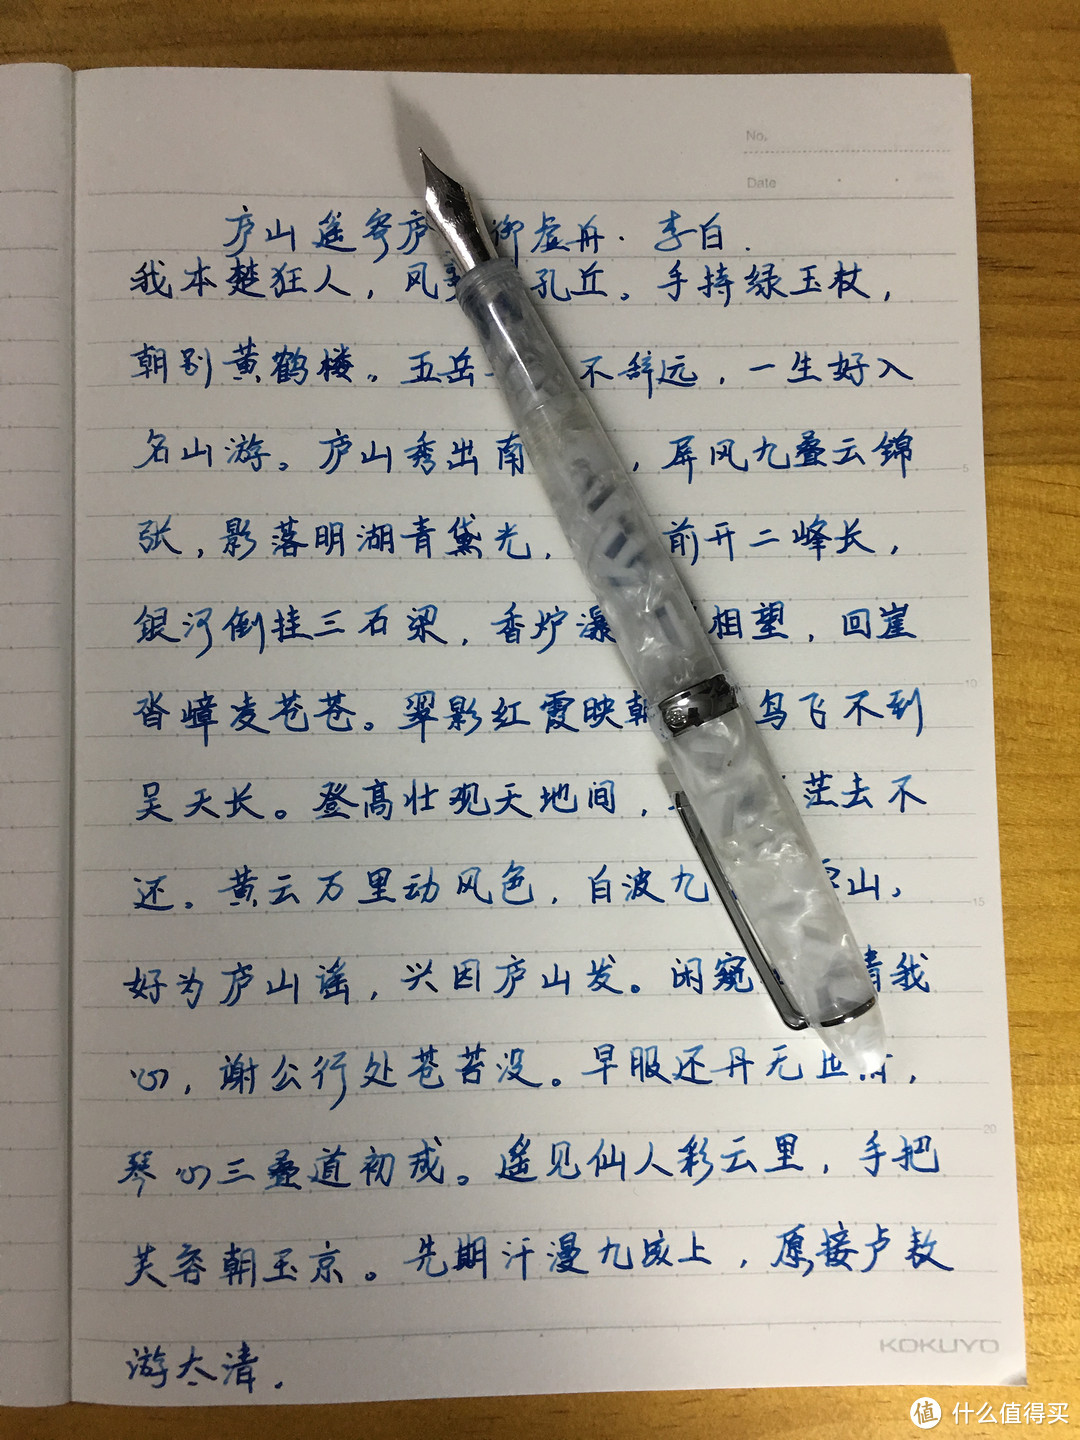 No.
Date
庐山遥寄庐御虚舟·李白.
我本楚狂人，风孔丘。手持绿玉杖，
朝别黄鹤楼。五岳不辞远，一生好入
名山游。庐山秀出南，屏风九叠云锦
张，影落明湖青黛光，前开二峰长，
5
银河倒挂三石梁，香炉瀑相望，回崖
沓嶂凌苍苍。翠影红霞映朝鸟飞不到
10
吴天长。登高壮观天地间，茫去不
还。黄云万里动风色，白波九山。
15
好为庐山谣，兴因庐山发。闲窥清我
心，谢公行处苍苔没。早服还丹无世，
琴心三叠道初成。遥见仙人彩云里，手把
20
芙蓉朝玉京。先期汗漫九垓上，愿接卢敖
游太清.
KOKUYO
值 什么值得买